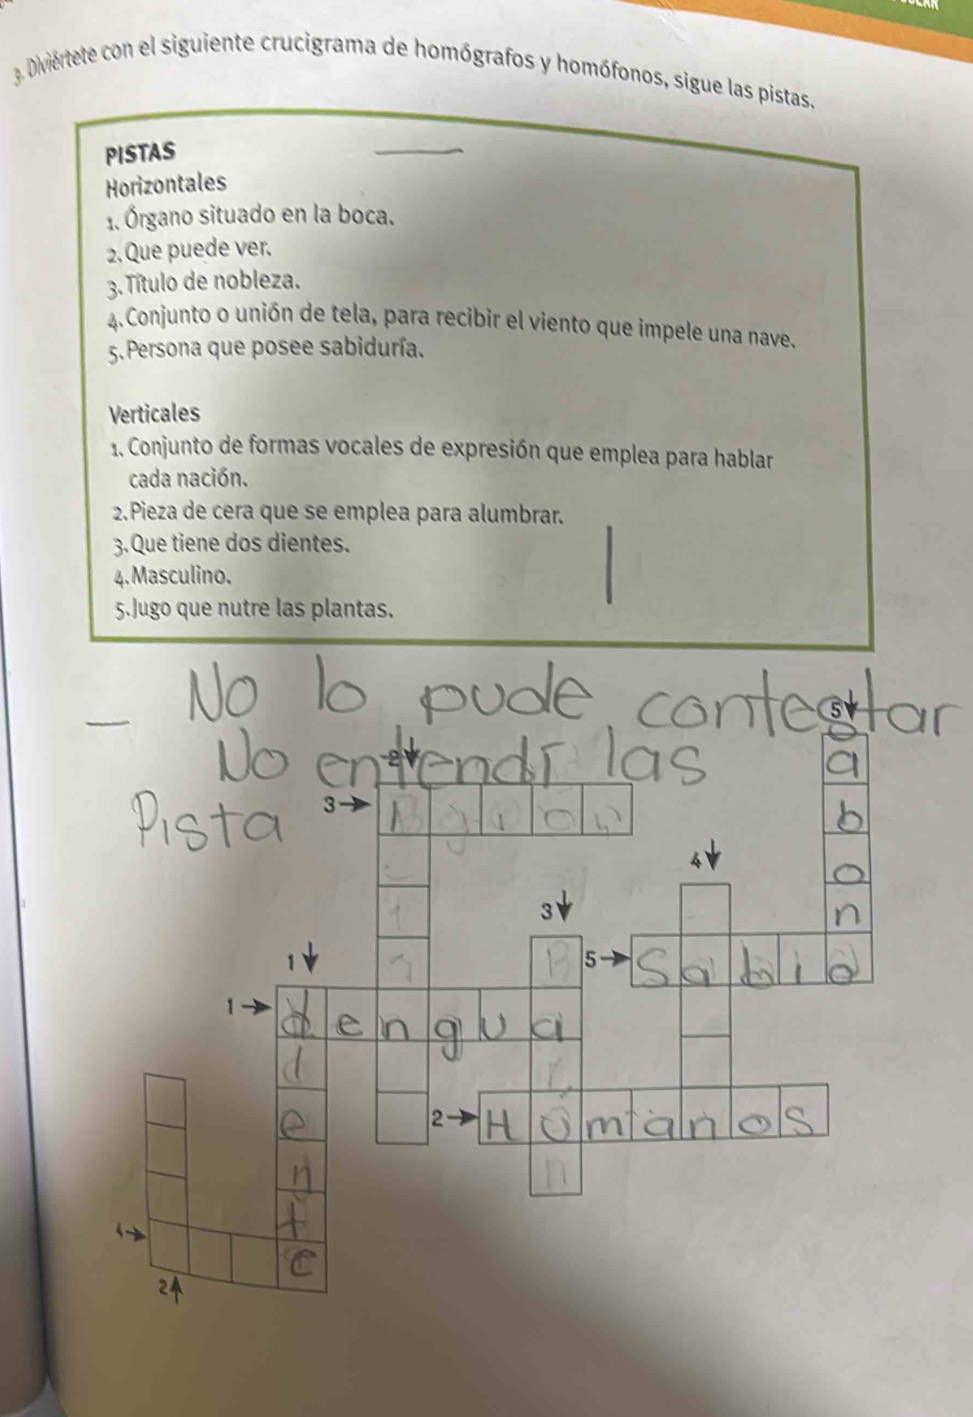 3. Diviértete con el siguiente crucigrama de homógrafos y homófonos, sigue las pistas.
PISTAS
Horizontales
1. Órgano situado en la boca.
2. Que puede ver.
3. Título de nobleza.
4. Conjunto o unión de tela, para recibir el viento que impele una nave.
5. Persona que posee sabiduría.
Verticales
1. Conjunto de formas vocales de expresión que emplea para hablar
cada nación.
2. Pieza de cera que se emplea para alumbrar.
3. Que tiene dos dientes.
4. Masculino.
5. Jugo que nutre las plantas.
No lo pude contestar
No entendi las
Pista
5
a
b
o
n
2
3
4
3
5 Sabio
1
1 dengua
d
e
n
t
e
2 Homanos
n
4
2